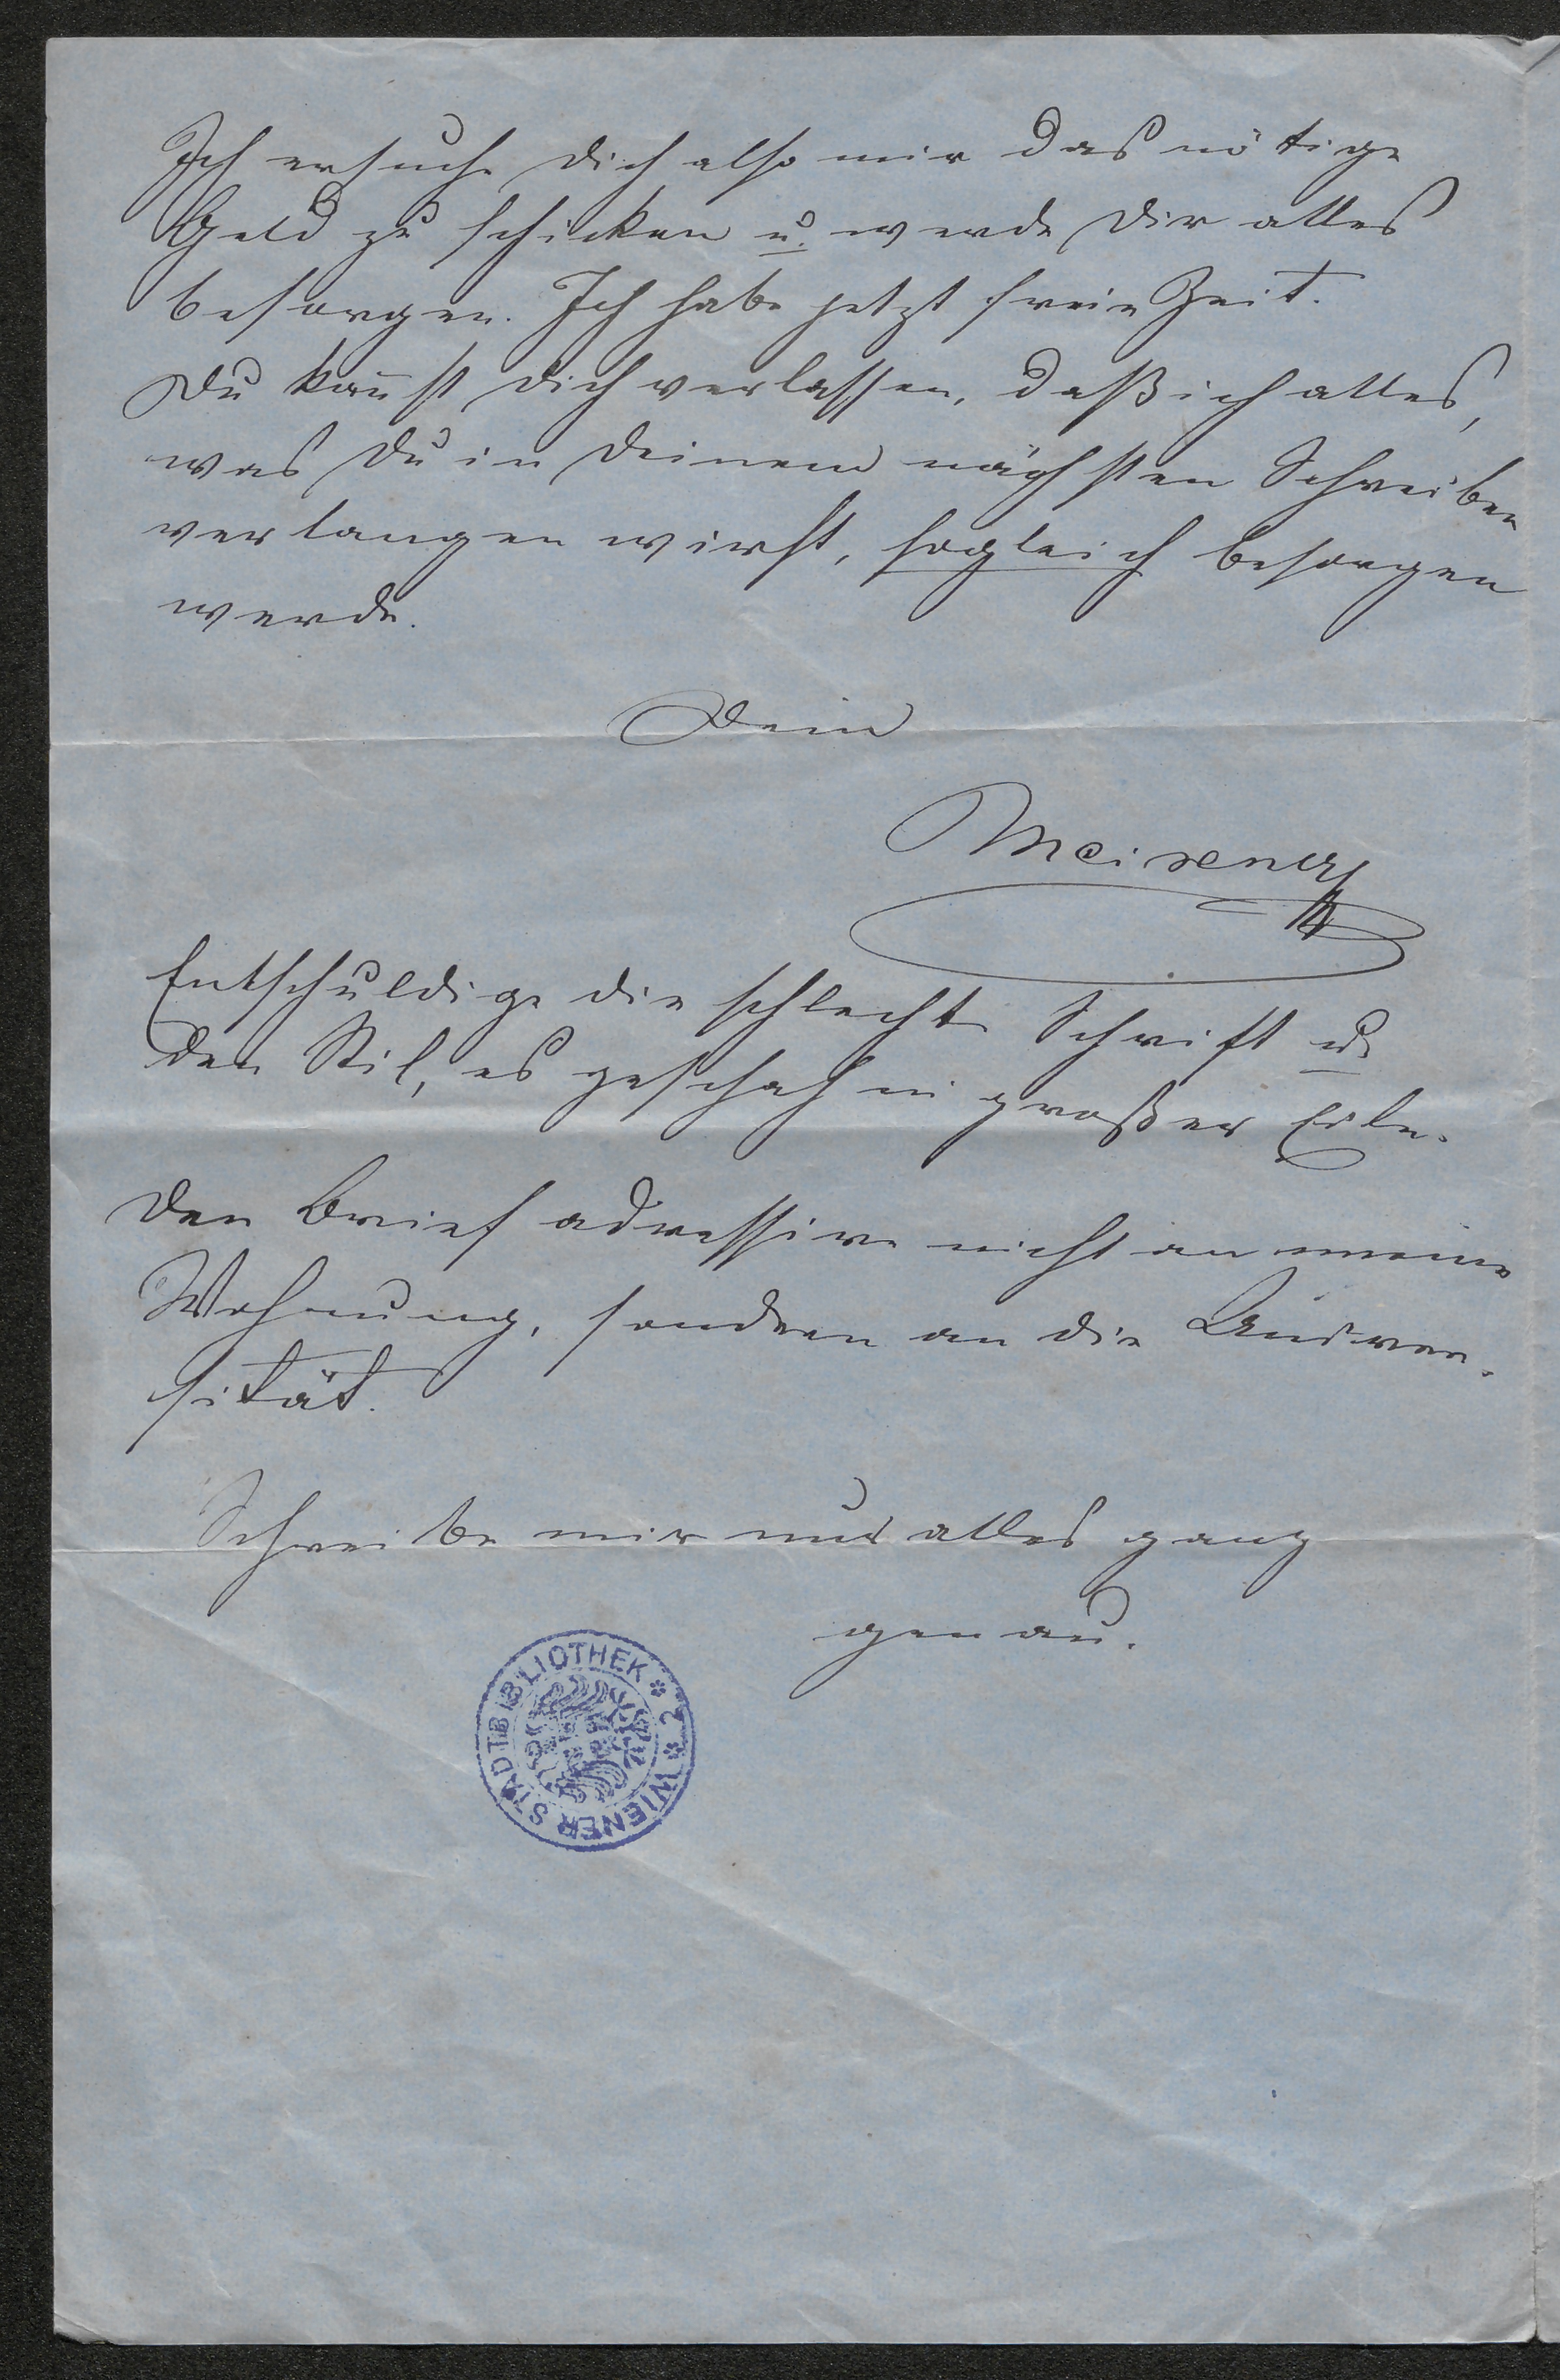 Ich ersuche Dich also mir das nötige
Geld zu schicken u. werde Dir alles
besorgen. Ich habe jetzt freie Zeit.
Du kan̄st Dich verlassen, daß ich alles,
was Du in Deinem nächsten Schreiben
verlangen wirst, sogleich besorgen
werde.
Dein
Meixner
Entschuldige die schlechte Schrift u.
den Stil, es geschah in großer Eile.
Den Brief adressire nicht an meine
Wohnung, sondern an die Univer-
sität.
Schreibe mir nur alles ganz
genau.
WIENER STADTBIBLIOTHEK * 2 *